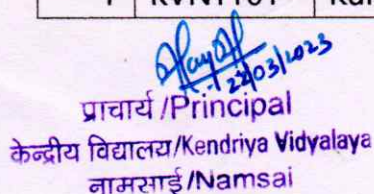 22/03/2023
प्राचार्य/Principal
केन्द्रीय विद्यालय/Kendriya Vidyalaya
नामसाई/Namsai